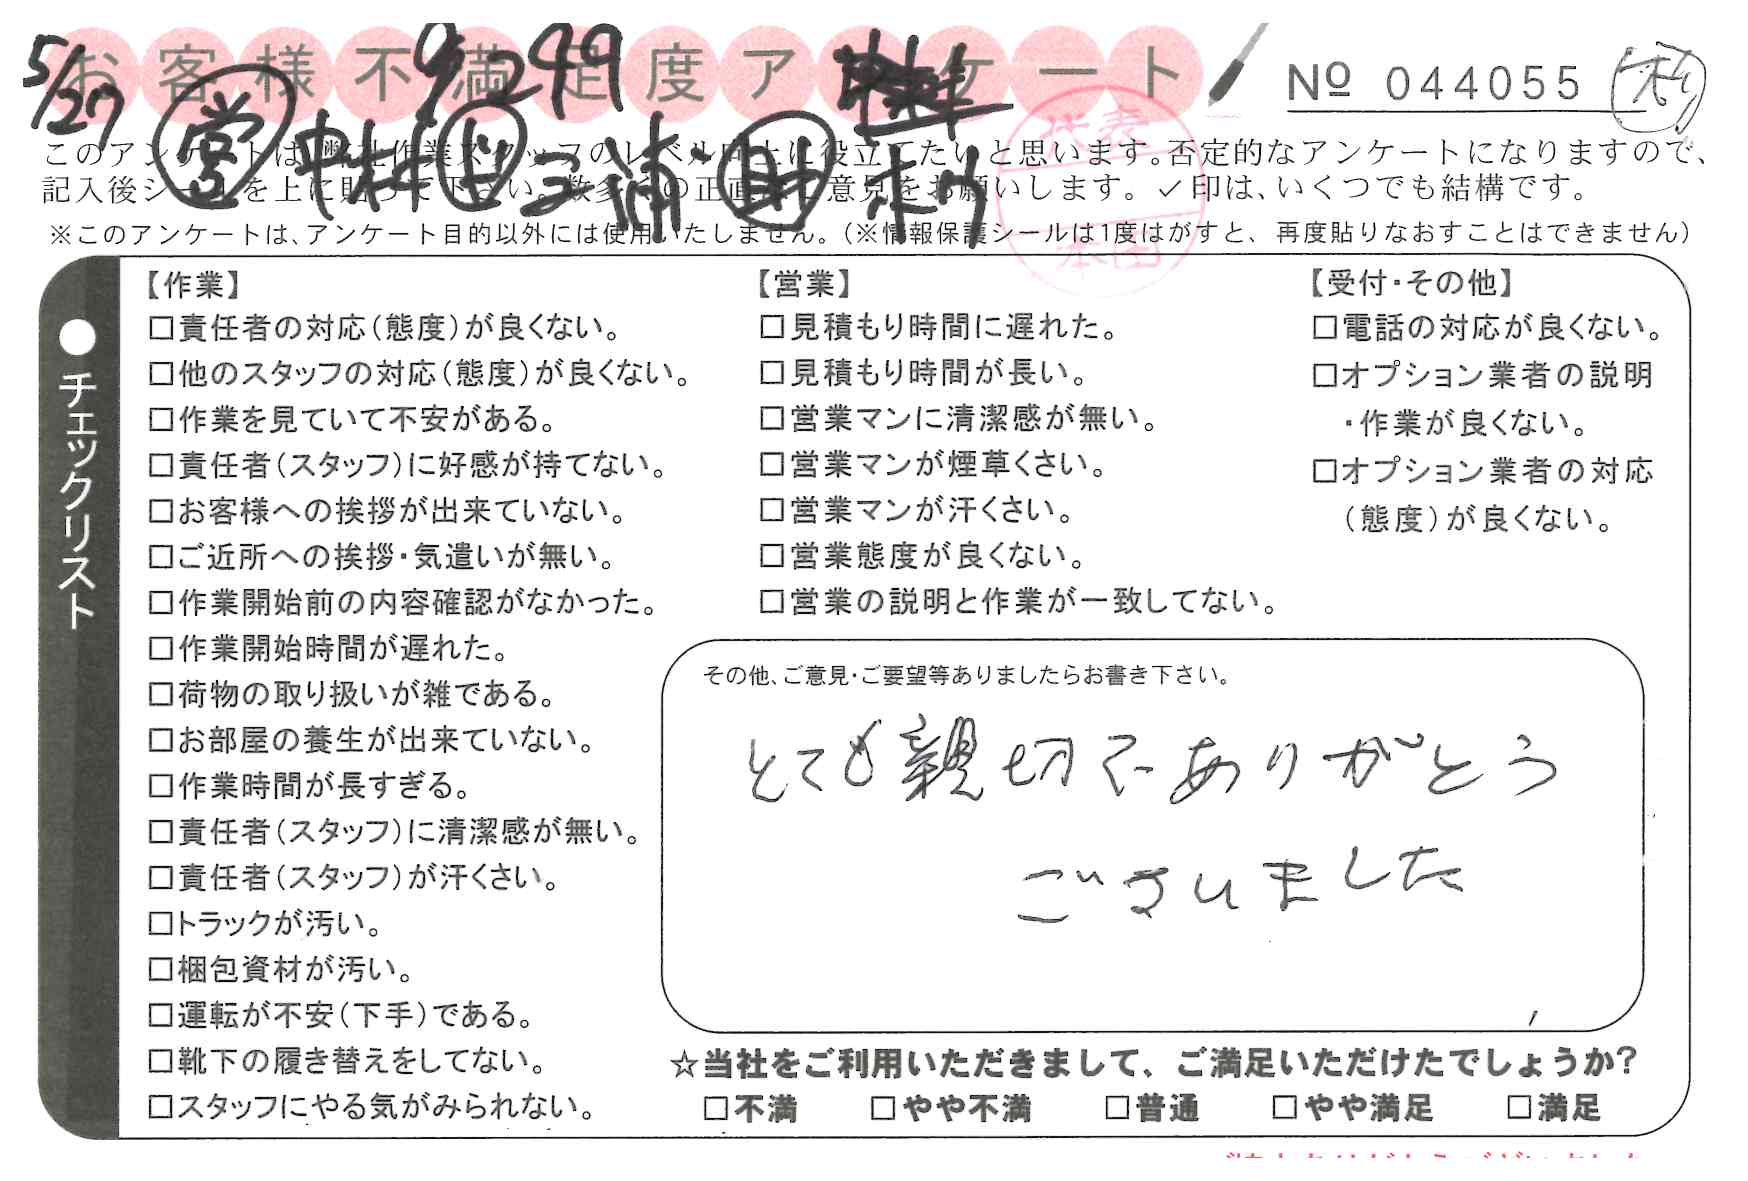 お客様不満足度アンケート
5/27
9249
№ 044055
営 中村 ド 三浦 助
このアンケートは、弊社作業スタッフのレベル向上に役立てたいと思います。否定的なアンケートになりますので、
記入後シールを上に貼って下さい。数多くの正直なご意見をお願いします。✓印は、いくつでも結構です。
※このアンケートは、アンケート目的以外には使用いたしません。(※情報保護シールは1度はがすと、再度貼りなおすことはできません)
代表
本田
●チェックリスト
【作業】
□責任者の対応(態度)が良くない。
□他のスタッフの対応(態度)が良くない。
□作業を見ていて不安がある。
□責任者(スタッフ)に好感が持てない。
□お客様への挨拶が出来ていない。
□ご近所への挨拶・気遣いが無い。
□作業開始前の内容確認がなかった。
□作業開始時間が遅れた。
□荷物の取り扱いが雑である。
□お部屋の養生が出来ていない。
□作業時間が長すぎる。
□責任者(スタッフ)に清潔感が無い。
□責任者(スタッフ)が汗くさい。
□トラックが汚い。
□梱包資材が汚い。
□運転が不安(下手)である。
□靴下の履き替えをしてない。
□スタッフにやる気がみられない。
【営業】
□見積もり時間に遅れた。
□見積もり時間が長い。
□営業マンに清潔感が無い。
□営業マンが煙草くさい。
□営業マンが汗くさい。
□営業態度が良くない。
□営業の説明と作業が一致してない。
【受付・その他】
□電話の対応が良くない。
□オプション業者の説明
・作業が良くない。
□オプション業者の対応
(態度)が良くない。
その他、ご意見・ご要望等ありましたらお書き下さい。
とても親切でありがとう
ございました
☆当社をご利用いただきまして、ご満足いただけたでしょうか?
□不満 □やや不満 □普通 □やや満足 □満足